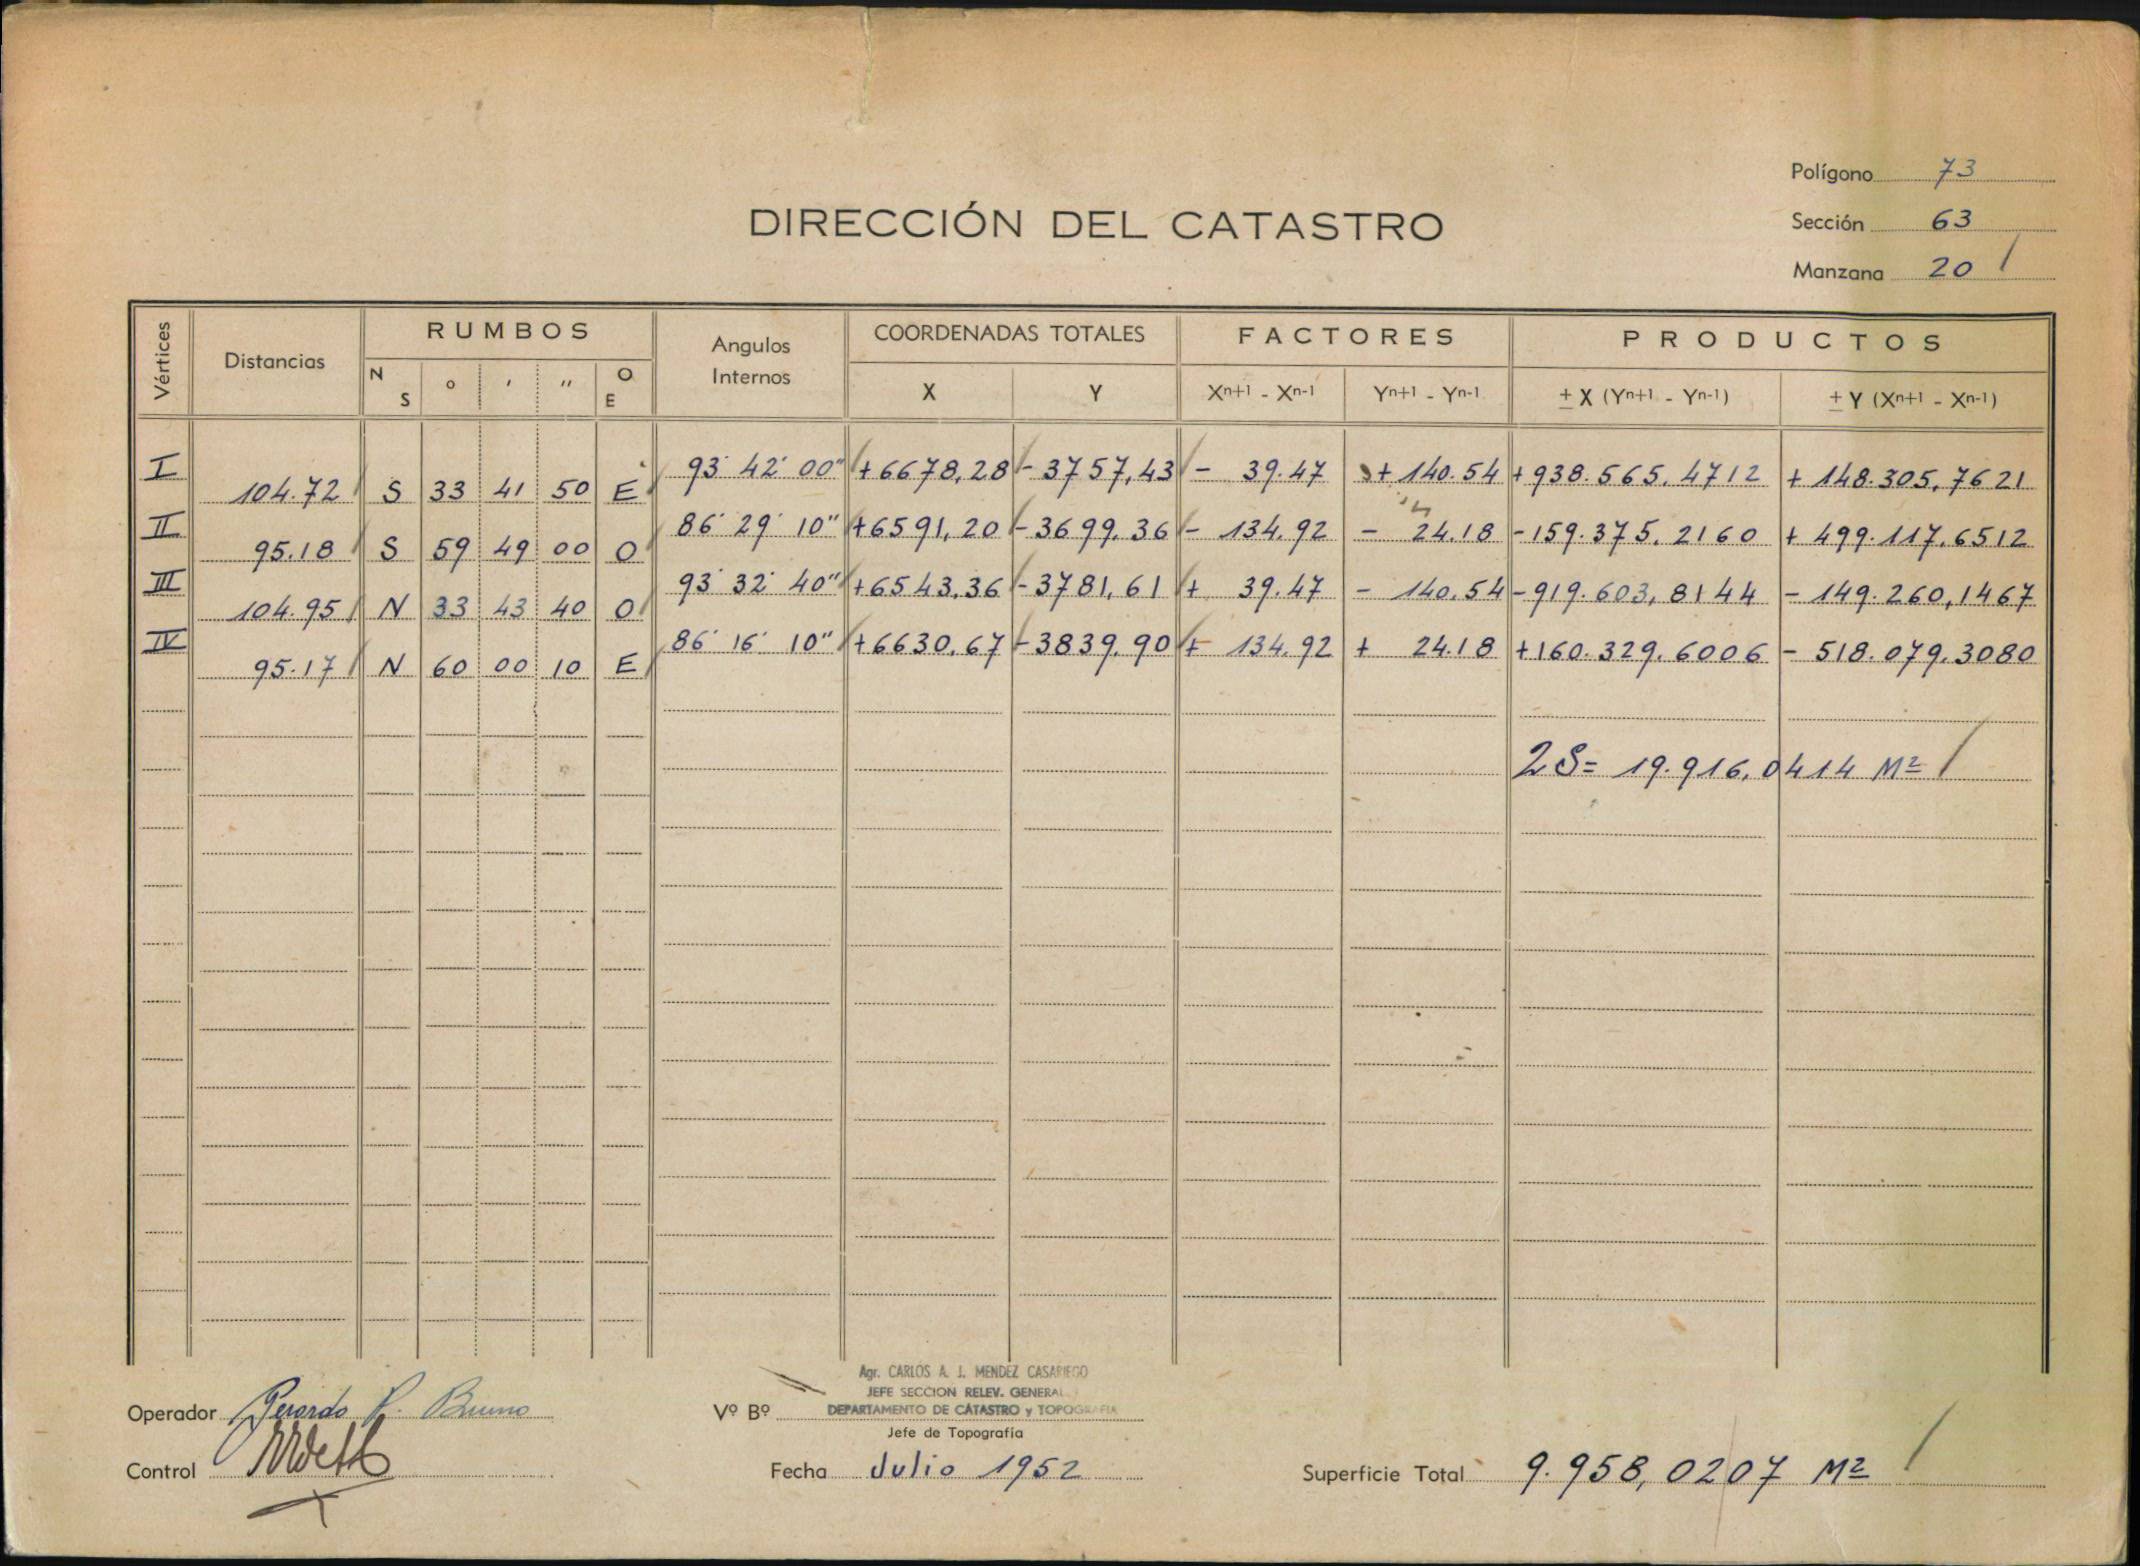 Polígono 73
DIRECCIÓN DEL CATASTRO
Sección 63
Manzana 20
Vértices Distancias RUMBOS Angulos Internos COORDENADAS TOTALES FACTORES PRODUCTOS
N S ° ' '' O E X Y Xn+1 - Xn-1 Yn+1 - Yn-1 ± X (Yn+1 - Yn-1) ± Y (Xn+1 - Xn-1)
I 93° 42' 00" +6678,28 -3757,43 - 39.47 + 140.54 +938.565.4712 + 148.305,7621
104.72 S 33 41 50 E
II 86° 29' 10" +6591,20 -3699,36 - 134,92 - 24.18 -159.375.2160 + 499.117,6512
95.18 S 59 49 00 O
III 93° 32' 40" +6543,36 -3781,61 + 39.47 - 140.54 -919.603,8144 - 149.260,1467
104.95 N 33 43 40 O
IV 86° 16' 10" +6630,67 -3839,90 + 134,92 + 24.18 +160.329.6006 - 518.079.3080
95.17 N 60 00 10 E
2S= 19.916,0414 M²
Agr. CARLOS A. J. MENDEZ CASARIEGO
JEFE SECCION RELEV. GENERAL
Operador Gerardo P. Bruno Vº Bº DEPARTAMENTO DE CATASTRO y TOPOGRAFIA
Jefe de Topografía
Control Fecha Julio 1952 Superficie Total 9.958,0207 M²